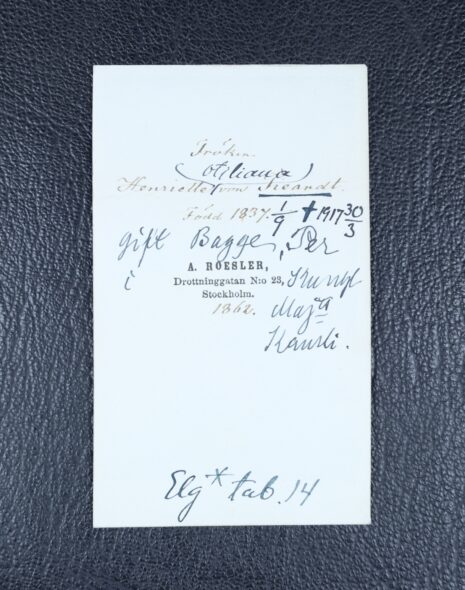 Fröken.
(Otiliana)
Henriette von Kræmdt.
Född 1837 1/9 † 1917 30/3
gift Bagge, Per
i Kungl
A. ROESLER,
Drottninggatan N:o 23,
Stockholm.
1862. Maj:a
Kansli.
Elg* tab. 14